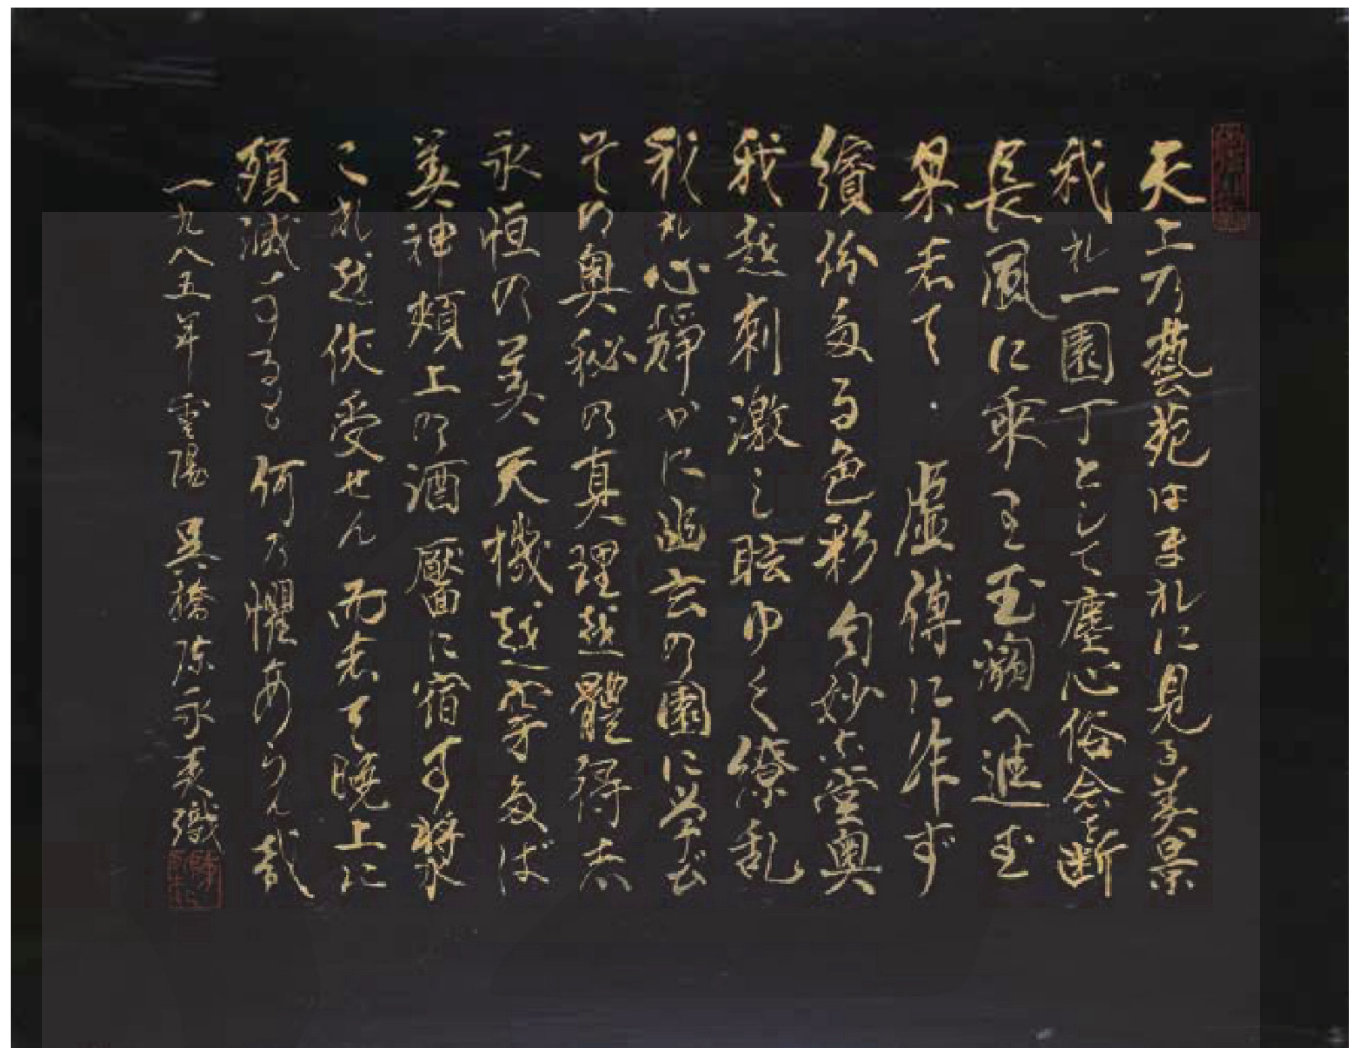 天上乃藝苑はまれに見る美景
我れ一園丁として塵心俗念を断
長風に乗里玉瀬へ進む
果志て 虚傳に非ず
繽份多る色彩匂妙な堂奥
我越刺激し眩ゆく繚乱
我れ心静かに幽玄の園に学び
その奥秘の真理越體得志
永恒の美天機越窄多ば
美神頬上の酒靨に宿す将
これ越伏受せん而志て暁上に
殞滅するも何乃懼あらん哉
一九八五年 雲陽 吳橋陳永夫識